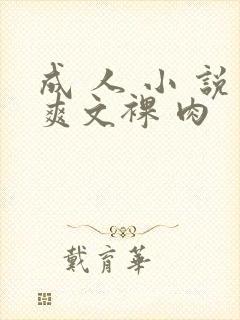 成人小說
爽文裸肉
戴育華